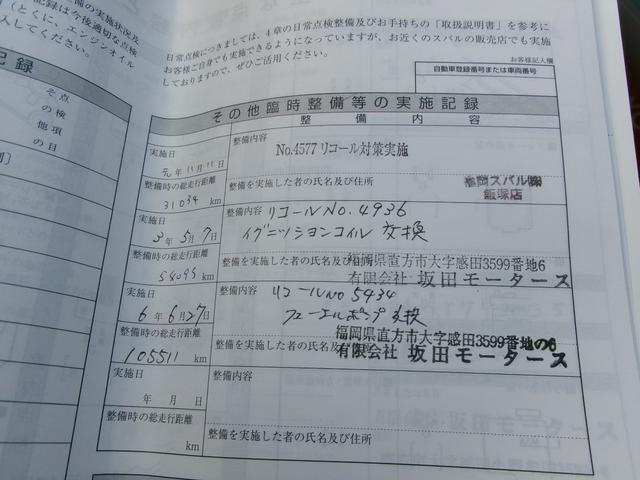 の他の実施状況及
記録は今後適切な点検
（とくに、エンジンオイル
入してください。
記録
その
点検
の項
他目
日常点検につきましては、4章の日常点検整備及びお手持ちの「取扱説明書」を参考に
お客様ご自身でも実施できるようになっていますが、お近くのスバルの販売店でも実施
しておりますので、ぜひご活用ください。
お客様記入欄
自動車登録番号または車両番号
その他臨時整備等の実施記録
整備内容
実施日
元年11月11日
整備内容
No.4577 リコール対策実施
整備時の総走行距離
31034 km
整備を実施した者の氏名及び住所
福岡スバル㈱
飯塚店
実施日
3年5月7日
整備内容
リコールNO.4936
イグニッションコイル 交換
整備時の総走行距離
54095 km
整備を実施した者の氏名及び住所
福岡県直方市大字感田3599番地6
有限会社 坂田モータース
実施日
6年6月27日
整備内容
リコールNO 5434
フューエルポンプ交換
整備時の総走行距離
105511 km
整備を実施した者の氏名及び住所
福岡県直方市大字感田3599番地の6
有限会社 坂田モータース
実施日
年 月 日
整備内容
整備時の総走行距離
km
整備を実施した者の氏名及び住所